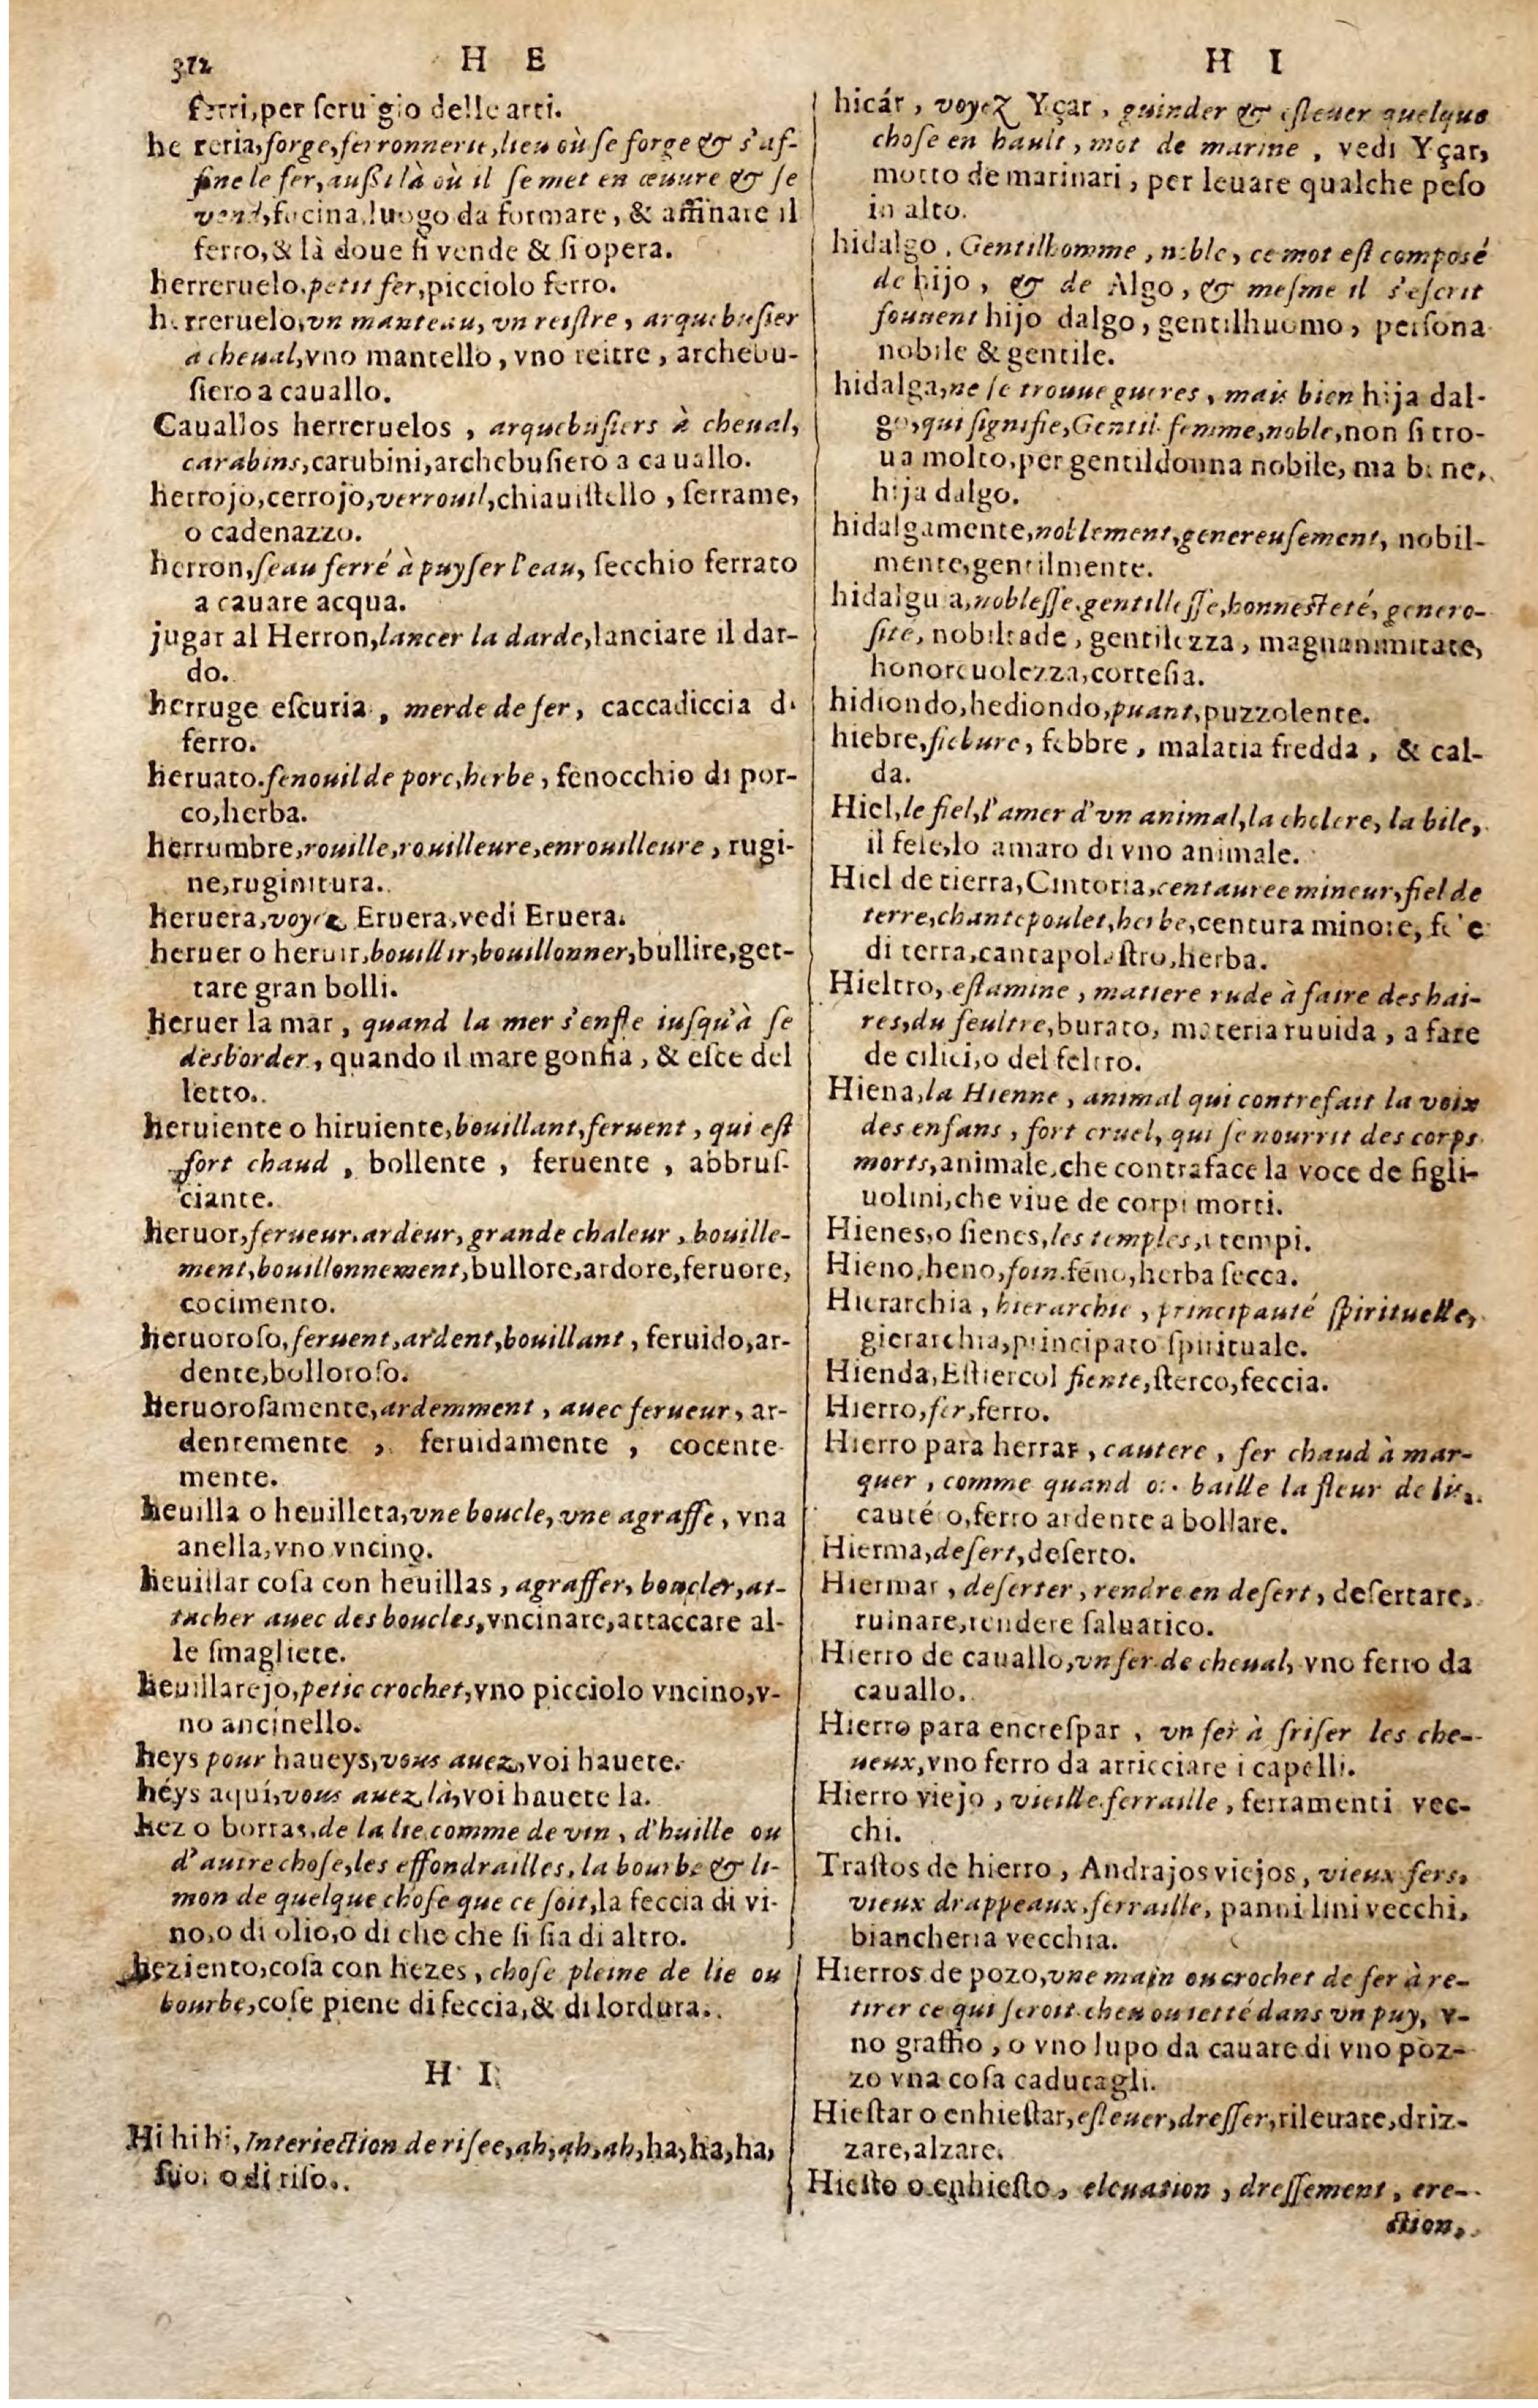 312
H E
ferri,per ſeruigio delle arti.
herreria,forge,ferronnerie,lieu où ſe forge & s'af-
fine le fer,außi là où il ſe met en œuure & ſe
vend,fucina,luogo da formare, & affinare il
ferro,& là doue ſi vende & ſi opera.
herreruelo.petit fer,picciolo ferro.
herreruelo,vn manteau, vn reiſtre, arquebuſier
a cheual,vno mantello, vno reitre, archebu-
ſiero a cauallo.
Cauallos herreruelos , arquebuſiers à cheual,
carabins,carubini,archebuſiero a cauallo.
herrojo,cerrojo,verrouil,chiauiſtello , ſerrame,
o cadenazzo.
herron,ſeau ferré à puyſer l'eau, ſecchio ferrato
a cauare acqua.
jugar al Herron,lancer la darde,lanciare il dar-
do.
herruge eſcuria , merde de fer, caccadiccia di
ferro.
heruato.fenouil de porc,herbe, fenocchio di por-
co,herba.
herrumbre,rouille,rouilleure,enrouilleure, rugi-
ne,ruginitura.
heruera,voyez Eruera,vedi Eruera.
heruer o heruir,bouillir,bouillonner,bullire,get-
tare gran bolli.
heruer la mar , quand la mer s'enfle iuſqu'à ſe
desborder, quando il mare gonfia, & eſce del
letto.
heruiente o hiruiente,bouillant,feruent, qui eſt
fort chaud , bollente , feruente , abbruſ-
ciante.
heruor,ferueur,ardeur,grande chaleur, bouille-
ment,bouillonnement,bullore,ardore,feruore,
cocimento.
heruoroſo,feruent,ardent,bouillant, feruido,ar-
dente,bolloroſo.
heruoroſamente,ardemment, auec ferueur, ar-
dentemente , feruidamente , cocente
mente.
heuilla o heuilleta,vne boucle, vne agraffe, vna
anella,vno vncino.
heuillar coſa con heuillas, agraffer, boucler,at-
tacher auec des boucles,vncinare,attaccare al-
le ſmagliete.
heuillarejo,petic crochet,vno picciolo vncino,v-
no ancinello.
heys pour haueys,vous auez,voi hauete.
héys aquí,vous auez là,voi hauete la.
hez o borras,de la lie comme de vin, d'huille ou
d'autre choſe,les effondrailles, la bourbe & li-
mon de quelque choſe que ce ſoit,la feccia di vi-
no,o di olio,o di che che ſi ſia di altro.
heziento,coſa con hezes, choſe pleine de lie ou
bourbe,coſe piene di feccia,& di lordura.
H I.
Hi hi hi, Interiection de riſee,ah,ah,ah,ha,ha,ha,
o di riſo.
H I
hicár, voyez Yçar, guinder & eſleuer quelque
choſe en hault, mot de marine , vedi Yçar,
motto de marinari, per leuare qualche peſo
in alto.
hidalgo. Gentilhomme, noble, ce mot eſt compoſé
de hijo, & de Algo, & meſme il s'eſcrit
ſouuent hijo dalgo, gentilhuomo, perſona
nobile & gentile.
hidalga,ne ſe trouue gueres, mais bien hija dal-
go,qui ſignifie,Gentil-femme,noble,non ſi tro-
ua molto,per gentildonna nobile, ma bene,
hija dalgo.
hidalgamente,noblement,genereuſement, nobil-
mente,gentilmente.
hidalguia,nobleſſe,gentilleſſe,honneſteté, genero-
ſite, nobiltade, gentilezza, magnanimitate,
honoreuolezza,corteſia.
hidiondo,hediondo,puant,puzzolente.
hiebre,fiebure, febbre, malatia fredda , & cal-
da.
Hiel,le fiel,l'amer d'vn animal,la cholere, la bile,
il fele,lo amaro di vno animale.
Hiel de tierra,Cintoria,centauree mineur,fiel de
terre,chantepoulet,herbe,centura minore, fele
di terra,cantapoleſtro,herba.
Hieltro, eſtamine, matiere rude à faire des hai-
res,du feultre,burato, materia ruuida , a fare
de cilici,o del feltro.
Hiena,la Hienne, animal qui contrefait la voix
des enfans , fort cruel, qui ſe nourrit des corps
morts,animale,che contraface la voce de figli-
uolini,che viue de corpi morti.
Hienes,o ſienes,les temples,i tempi.
Hieno,heno,foin.feno,herba ſecca.
Hierarchia, hierarchie, principauté ſpirituelle,
gierarchia,principato ſpirituale.
Hienda,Eſtiercol fiente,ſterco,feccia.
Hierro,fer,ferro.
Hierro para herrar, cautere, fer chaud à mar-
quer, comme quand on baille la fleur de lis,
cautero,ferro ardente a bollare.
Hierma,deſert,deſerto.
Hiermar, deſerter, rendre en deſert, deſertare,
ruinare,rendere ſaluatico.
Hierro de cauallo,vn fer de cheual, vno ferro da
cauallo.
Hierro para encreſpar , vn fer à friſer les che-
ueux,vno ferro da arricciare i capelli.
Hierro viejo, vieille ferraille, ferramenti vec-
chi.
Traſtos de hierro, Andrajos viejos, vieux fers,
vieux drappeaux,ferraille, panni lini vecchi,
biancheria vecchia.
Hierros de pozo,vne main ou crochet de fer à re-
tirer ce qui ſeroit cheu ou ietté dans vn puy, v-
no graffio, o vno lupo da cauare di vno poz-
zo vna coſa caducagli.
Hieſtar o enhieſtar,eſleuer,dreſſer,rileuare,driz-
zare,alzare.
Hieſto o enhieſto, eleuation, dreſſement, ere-
ction,